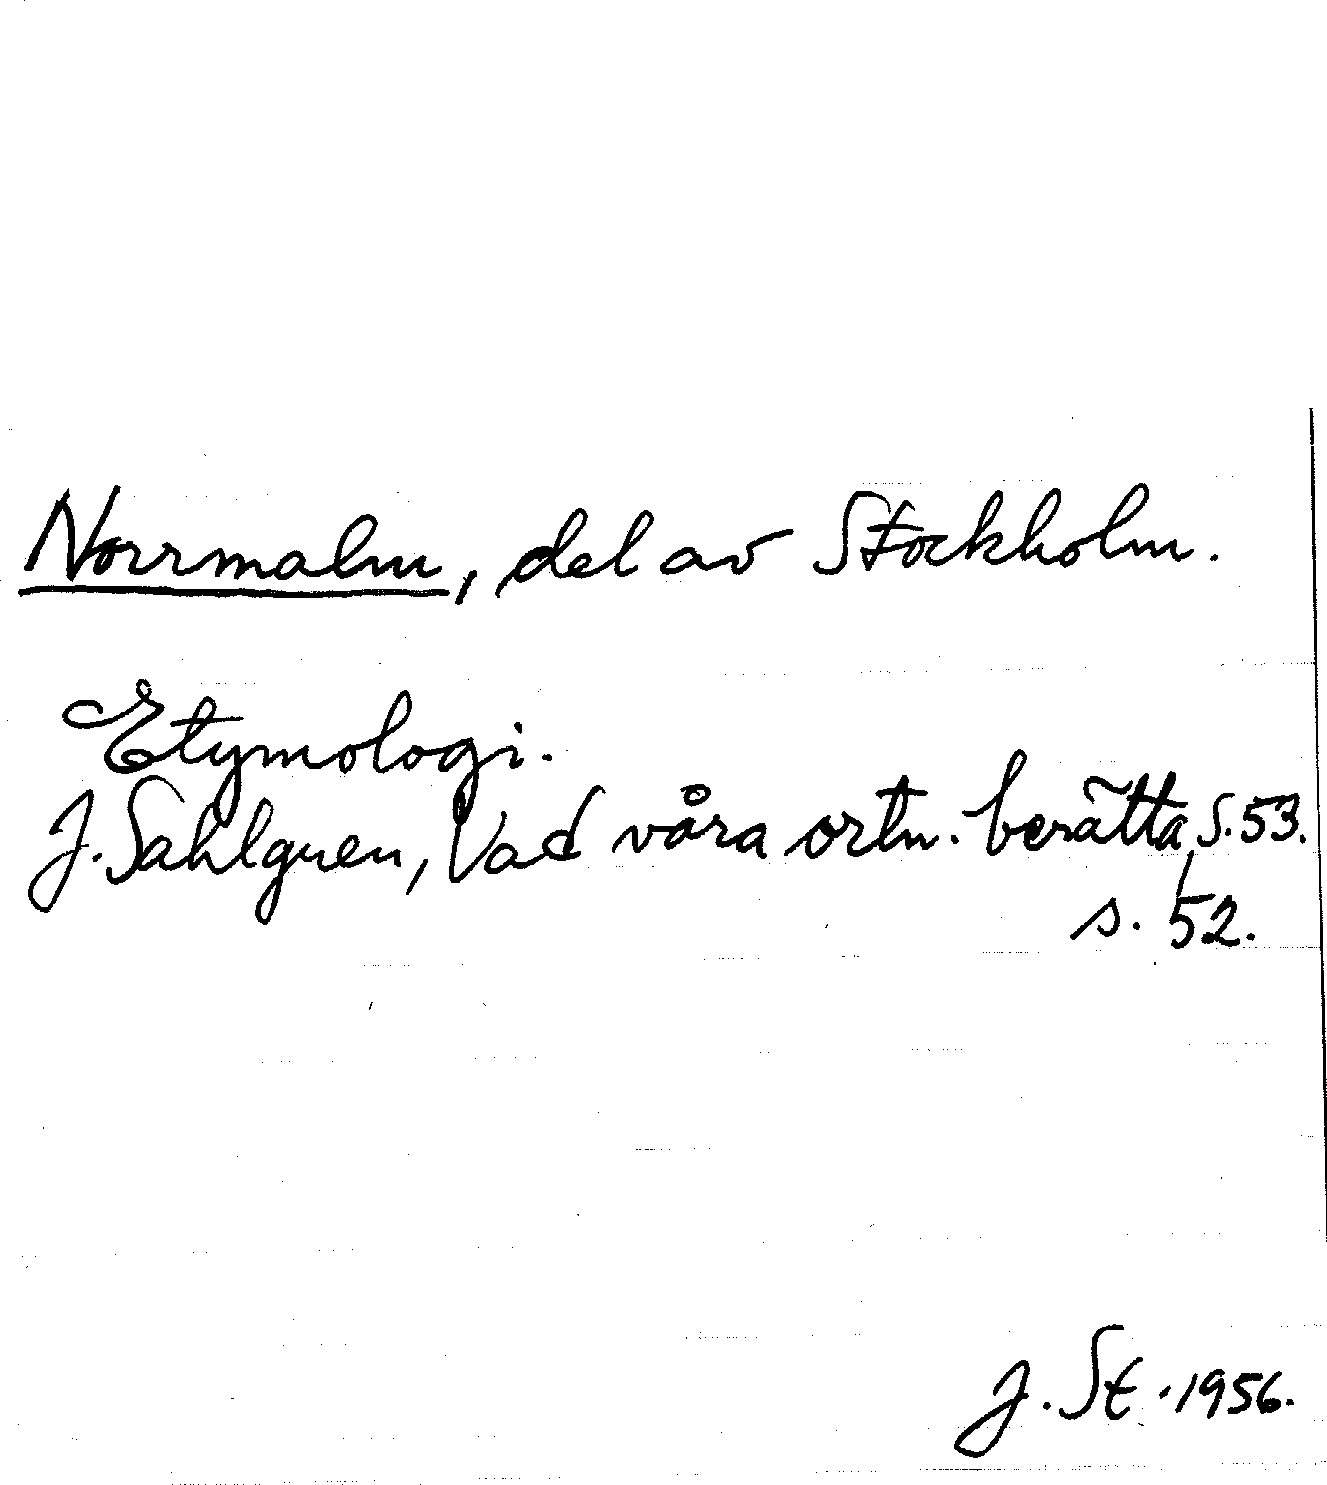 Norrmalm, del av Stockholm.
Etymologi.
J. Sahlgren, Vad våra ortn. berätta, S. 53.
s. 52.
J. St. 1956.